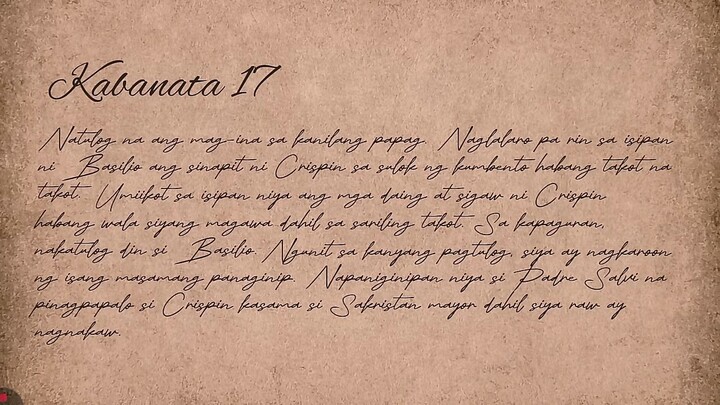 Kabanata 17
Natulog na ang mag-ina sa kanilang papag. Naglalaro pa rin sa isipan
ni Basilio ang sinapit ni Crispin sa sulok ng kumbento habang takot na
takot. Umiikot sa isipan niya ang mga daing at sigaw ni Crispin
habang wala siyang magawa dahil sa sariling takot. Sa kapaguran,
nakatulog din si Basilio. Ngunit sa kanyang pagtulog, siya ay nagkaroon
ng isang masamang panaginip. Napaniginipan niya si Padre Salvi na
pinagpapalo si Crispin kasama si Sakristan mayor dahil siya raw ay
nagnakaw.